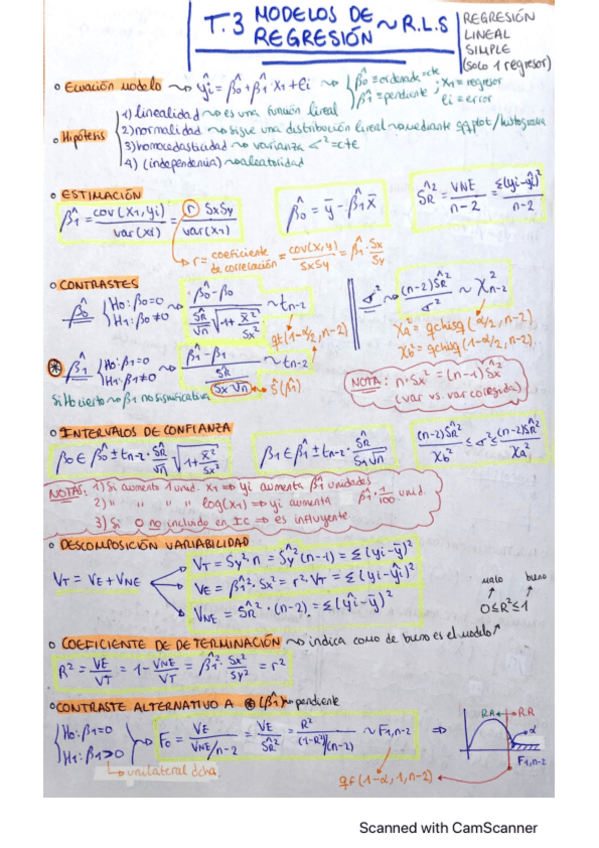 T.3 MODELOS DE REGRESIÓN ~ R.L.S
REGRESIÓN
LINEAL
SIMPLE
(solo 1 regresor)
° Ecuación modelo ~> ŷi = β̂0 + β̂1 · x1 + ei ~> { β̂0 = ordenada = cte ; x1 = regresor
β̂1 = pendiente ; ei = error
° Hipótesis
1) linealidad ~> es una función lineal
2) normalidad ~> sigue una distribución lineal ~> mediante qqplot/histograma
3) homocedasticidad ~> varianza σ² = cte
4) (independencia) ~> aleatoridad
° ESTIMACIÓN
β̂1 = cov(x1, yi) / var(xi) = r SxSy / var(x1)
β̂0 = ȳ - β̂1 x̄
ŜR² = VNE / n-2 = Σ(yi-ŷi)² / n-2
r = coeficiente de correlación = cov(x,y) / SxSy = β̂1 · Sx / Sy
° CONTRASTES
β̂0 { H0: β0=0
H1: β0≠0
~> β̂0 - β0 / ŜR/√n √1 + x̄²/Sx² ~ tn-2
qt(1-α/2, n-2)
σ² ~> (n-2)ŜR² / σ² ~ χ²n-2
χa² = qchisq(α/2, n-2)
χb² = qchisq(1-α/2, n-2)
⊛ β̂1 { H0: β1=0
H1: β1≠0
~> β̂1 - β1 / ŜR / Sx√n ~ tn-2
~> Ŝ(β̂1)
Si H0 cierto ~> β1 no significativa
NOTA: n·Sx² = (n-1)Ŝx²
(var vs. var corregida)
° INTERVALOS DE CONFIANZA
β0 ∈ β̂0 ± tn-2 · ŜR/√n √1 + x̄²/Sx²
β1 ∈ β̂1 ± tn-2 · ŜR / Sx√n
(n-2)ŜR² / χb² ≤ σ² ≤ (n-2)ŜR² / χa²
NOTAS: 1) Si aumenta 1 unid. x1 => yi aumenta β̂1 unidades
2) " " " log(x1) => yi aumenta β̂1 · 1/100 unid.
3) Si 0 no incluido en IC => es influyente
° DESCOMPOSICIÓN VARIABILIDAD
VT = VE + VNE
VT = Sy² · n = Ŝy² (n-1) = Σ(yi-ȳ)²
VE = β̂1² · Sx² = r² · VT = Σ(yi-ŷi)²
VNE = ŜR² · (n-2) = Σ(ŷi-ȳ)²
malo bueno
0 ≤ R² ≤ 1
° COEFICIENTE DE DETERMINACIÓN ~> indica como de bueno es el modelo
R² = VE / VT = 1 - VNE / VT = β̂1² · Sx² / Sy² = r²
° CONTRASTE ALTERNATIVO A ⊛ (β̂1) ~> pendiente
{ H0: β1=0
H1: β1>0
~> F0 = VE / VNE/n-2 = VE / ŜR² = R² / (1-R²)/(n-2) ~ F1,n-2 =>
unilateral dcha.
qf(1-α, 1, n-2)
RA RR
α
F1,n-2
Scanned with CamScanner